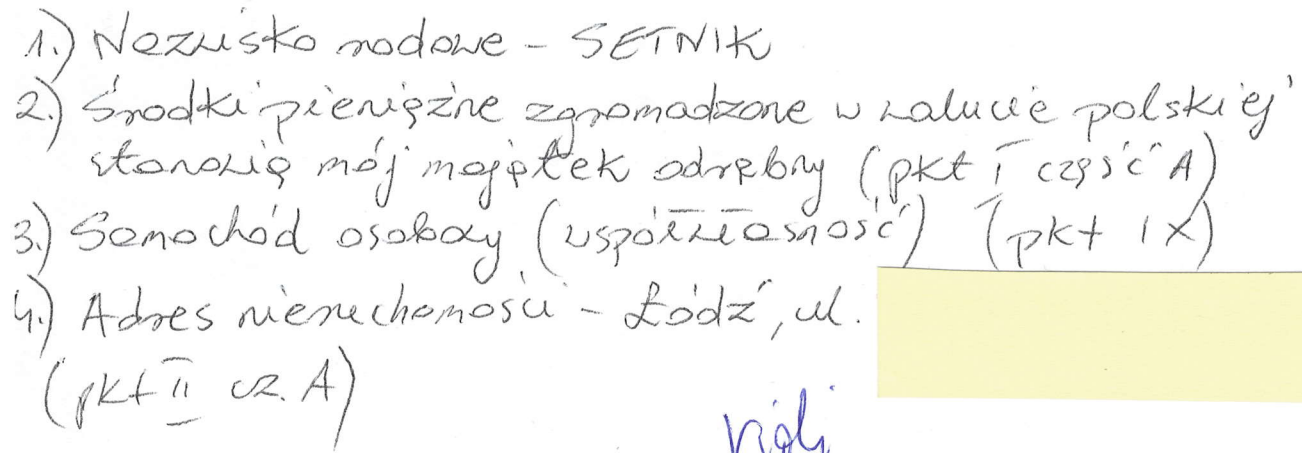 1.) Nazwisko rodowe - SETNIK
2.) Środki pieniężne zgromadzone w walucie polskiej
stanowią mój majątek odrębny (pkt I część A)
3.) Samochód osobowy (współwłasność) (pkt IX)
4.) Adres nieruchomości - Łódź, ul.
(pkt II cz. A)